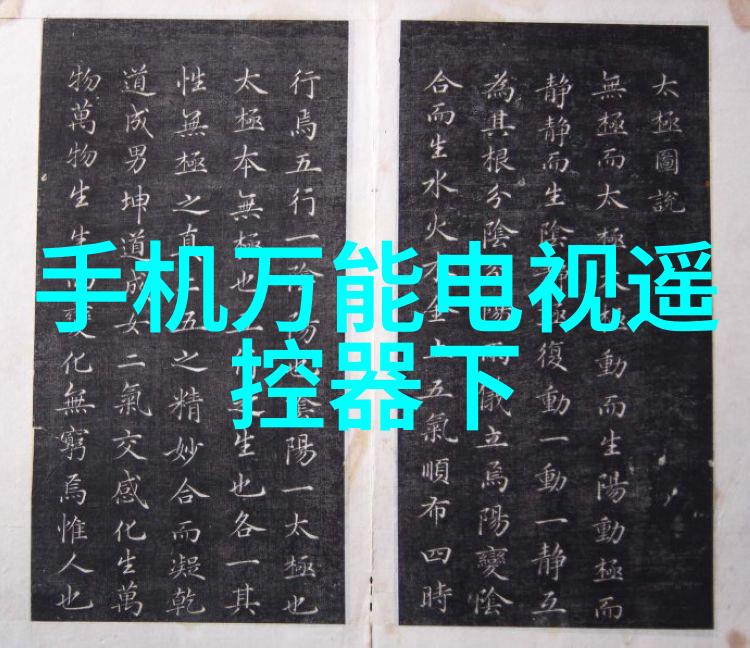 手机万能电视遥
控器下
太極圖說
無極而太極太極動而生陽動極而
静静而生陰静極復動一動一静互
為其根分陰分陽兩儀立焉陽變陰
合而生水火木金土五氣順布四時
行焉五行一陰陽也陰陽一太極也
太極本無極也五行之生也各一其
性無極之真二五之精妙合而凝乾
道成男坤道成女二氣交感化生萬
物萬物生生而變化無窮焉惟人也